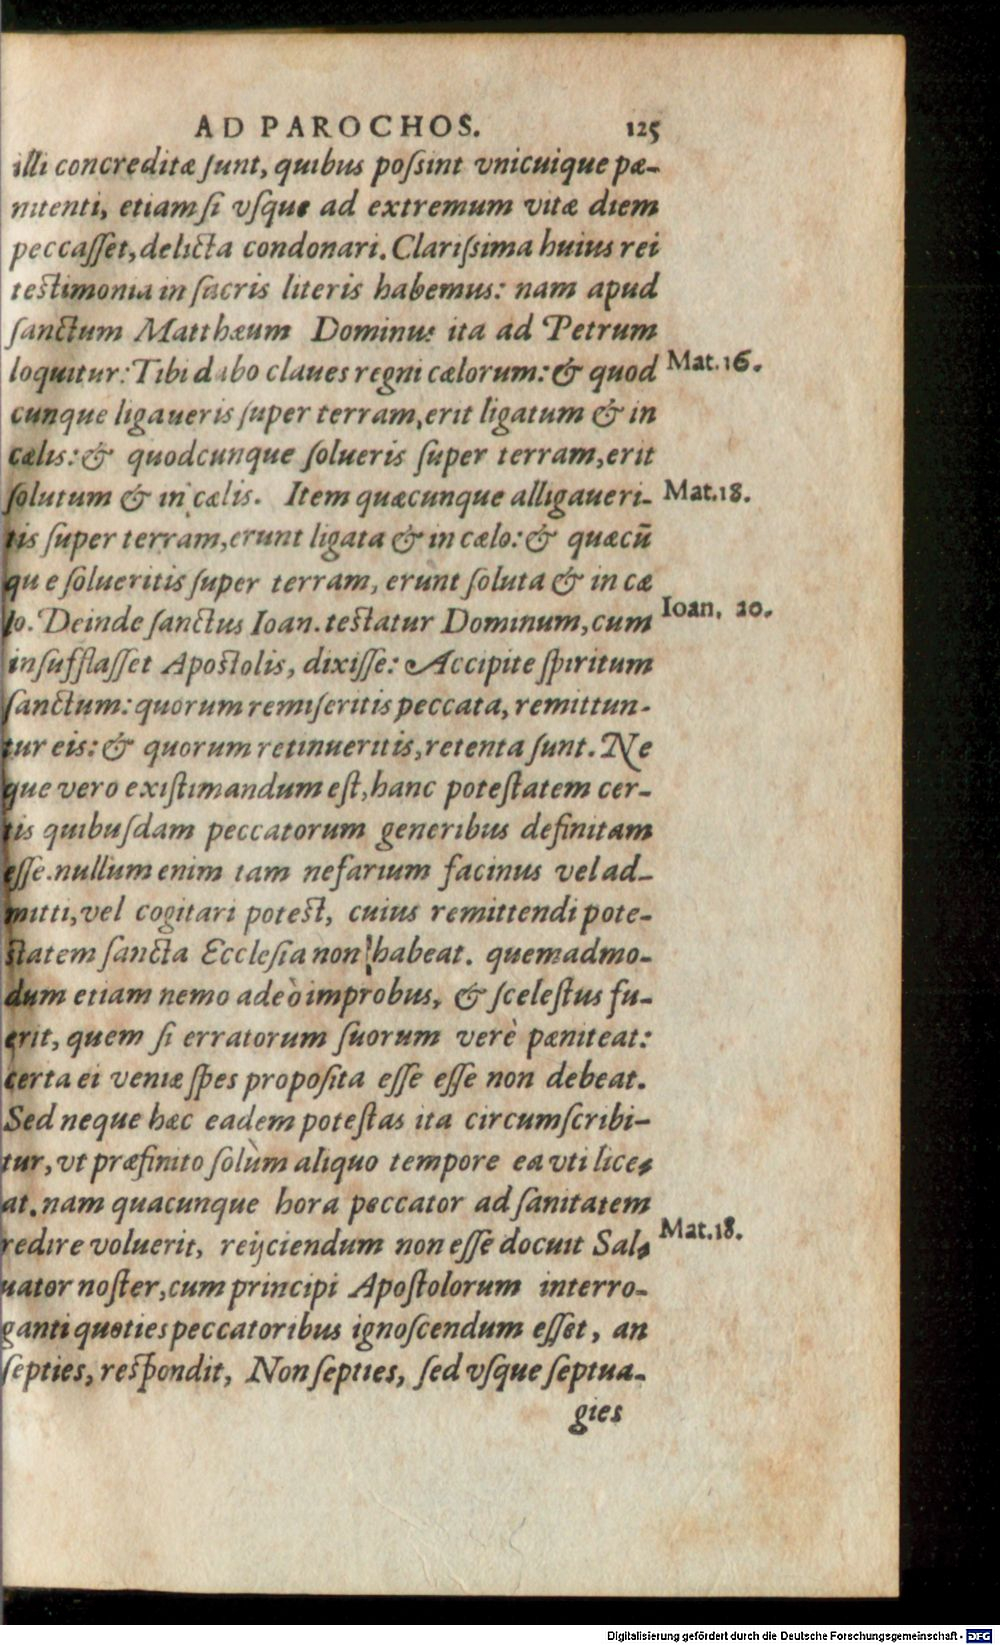 AD PAROCHOS. 125
illi concreditæ ſunt, quibus poſsint vnicuique pæ-
nitenti, etiamſi vſque ad extremum vitæ diem
peccaſſet, delicta condonari. Clariſsima huius rei
teſtimonia in ſacris literis habemus: nam apud
ſanctum Matthæum Dominus ita ad Petrum
loquitur: Tibi dabo claues regni cælorum: & quod
Mat. 16.
cunque ligaueris ſuper terram, erit ligatum & in
cælis: & quodcunque ſolueris ſuper terram, erit
ſolutum & in cælis. Item quæcunque alligaueri-
Mat. 18.
tis ſuper terram, erunt ligata & in cælo: & quæcū
que ſolueritis ſuper terram, erunt ſoluta & in cæ
lo. Deinde ſanctus Ioan. teſtatur Dominum, cum
Ioan. 20.
inſufflaſſet Apoſtolis, dixiſſe: Accipite ſpiritum
ſanctum: quorum remiſeritis peccata, remittun-
tur eis: & quorum retinueritis, retenta ſunt. Ne
que vero exiſtimandum eſt, hanc poteſtatem cer-
tis quibuſdam peccatorum generibus definitam
eſſe. nullum enim tam nefarium facinus vel ad-
mitti, vel cogitari poteſt, cuius remittendi pote-
ſtatem ſancta Eccleſia non habeat. quemadmo-
dum etiam nemo adeò improbus, & ſceleſtus fu-
erit, quem ſi erratorum ſuorum verè pæniteat:
certa ei veniæ ſpes propoſita eſſe eſſe non debeat.
Sed neque hæc eadem poteſtas ita circumſcribi-
tur, vt præfinito ſolùm aliquo tempore ea vti lice-
at. nam quacunque hora peccator ad ſanitatem
redire voluerit, reijciendum non eſſe docuit Sal-
Mat. 18.
uator noſter, cum principi Apoſtolorum interro-
ganti quoties peccatoribus ignoſcendum eſſet, an
ſepties, reſpondit, Non ſepties, ſed vſque ſeptua-
gies
Digitalisierung gefördert durch die Deutsche Forschungsgemeinschaft - DFG